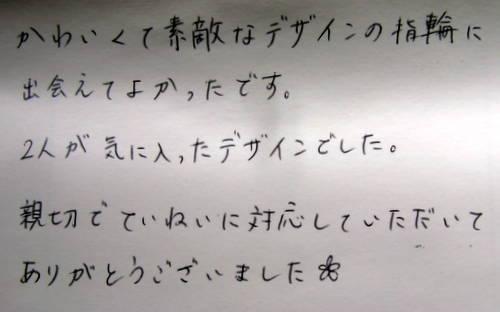 かわいくて素敵なデザインの指輪に
出会えてよかったです。
2人が気に入ったデザインでした。
親切でていねいに対応していただいて
ありがとうございました